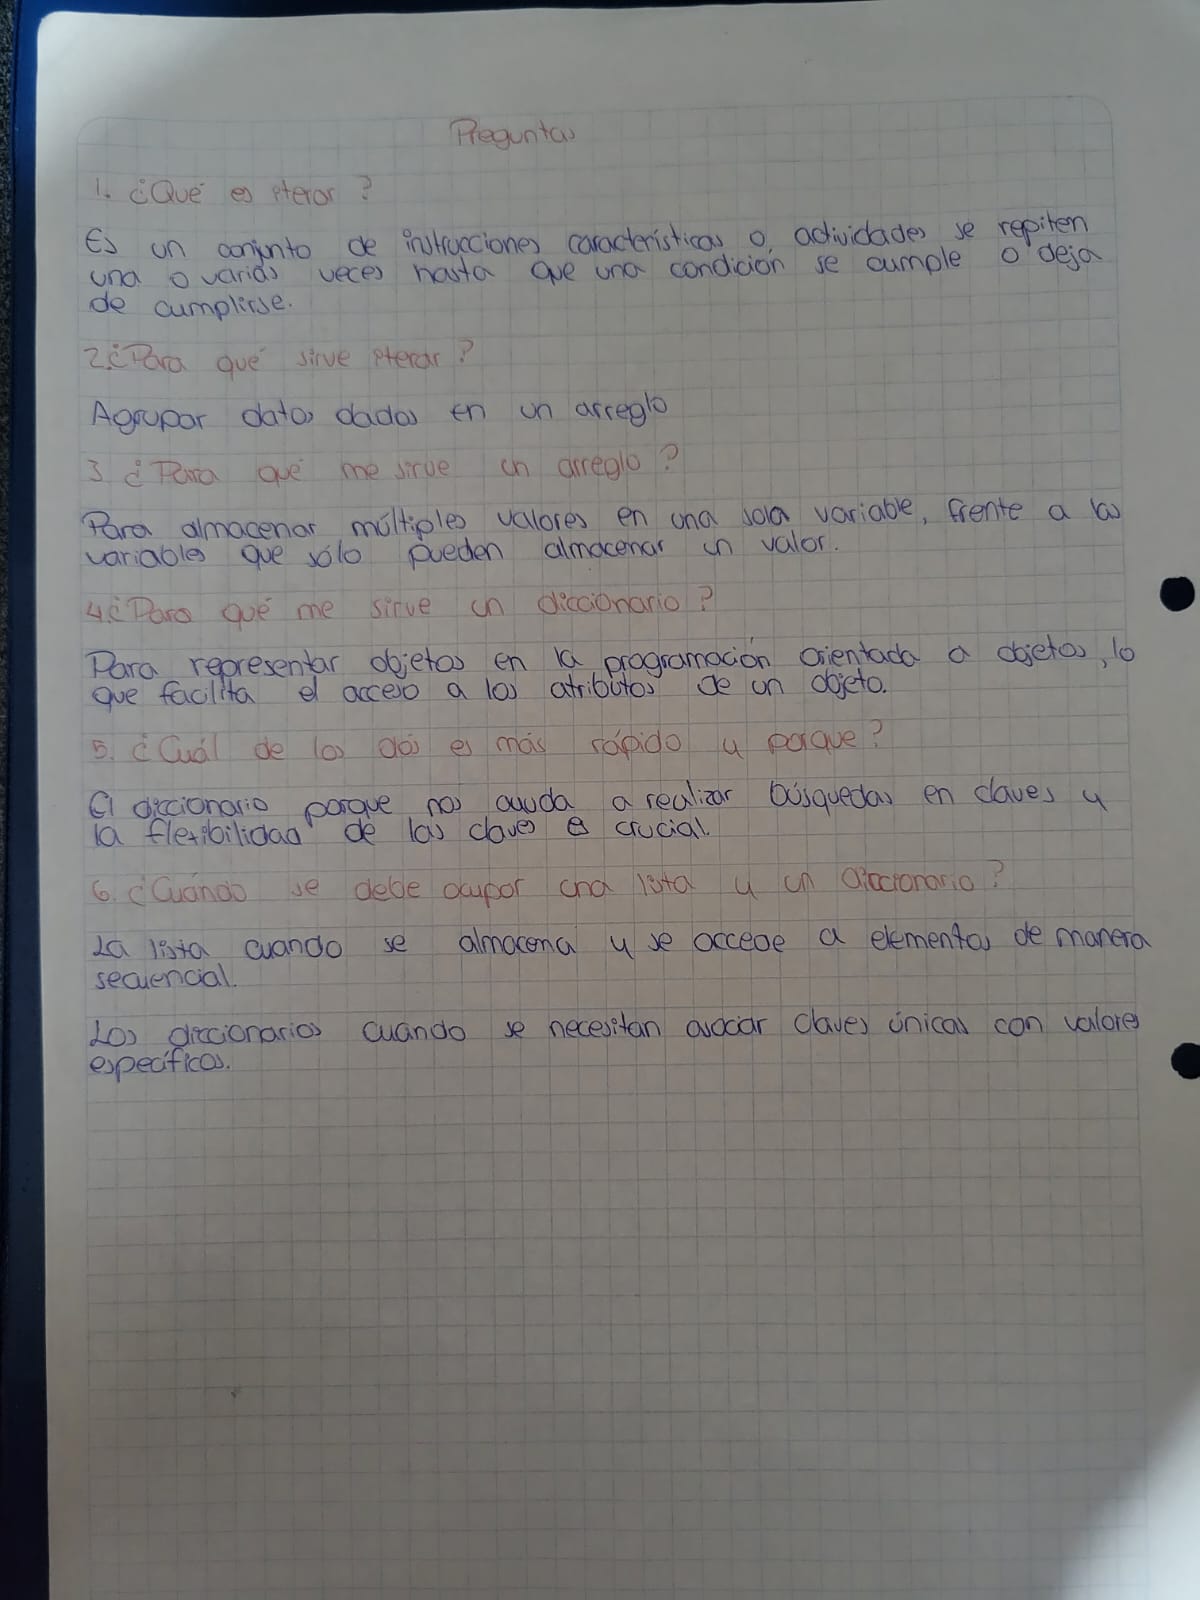 Preguntas
1. ¿Qué es iterar?
Es un conjunto de instrucciones características o actividades se repiten
una o varias veces hasta que una condición se cumple o deja
de cumplirse.
2. ¿Para qué sirve iterar?
Agrupar datos dados en un arreglo
3 ¿Para qué me sirve un arreglo?
Para almacenar múltiples valores en una sola variable, frente a las
variables que sólo pueden almacenar un valor.
4. ¿Para qué me sirve un diccionario?
Para representar objetos en la programación orientada a objetos, lo
que facilita el acceso a los atributos de un objeto.
5. ¿Cuál de los dos es más rápido y porque?
El diccionario porque nos ayuda a realizar búsquedas en claves y
la flexibilidad de las claves es crucial.
6. ¿Cuándo se debe ocupar una lista y un diccionario?
La lista cuando se almacena y se accede a elementos de manera
secuencial.
Los diccionarios cuando se necesitan asociar claves únicas con valores
específicos.